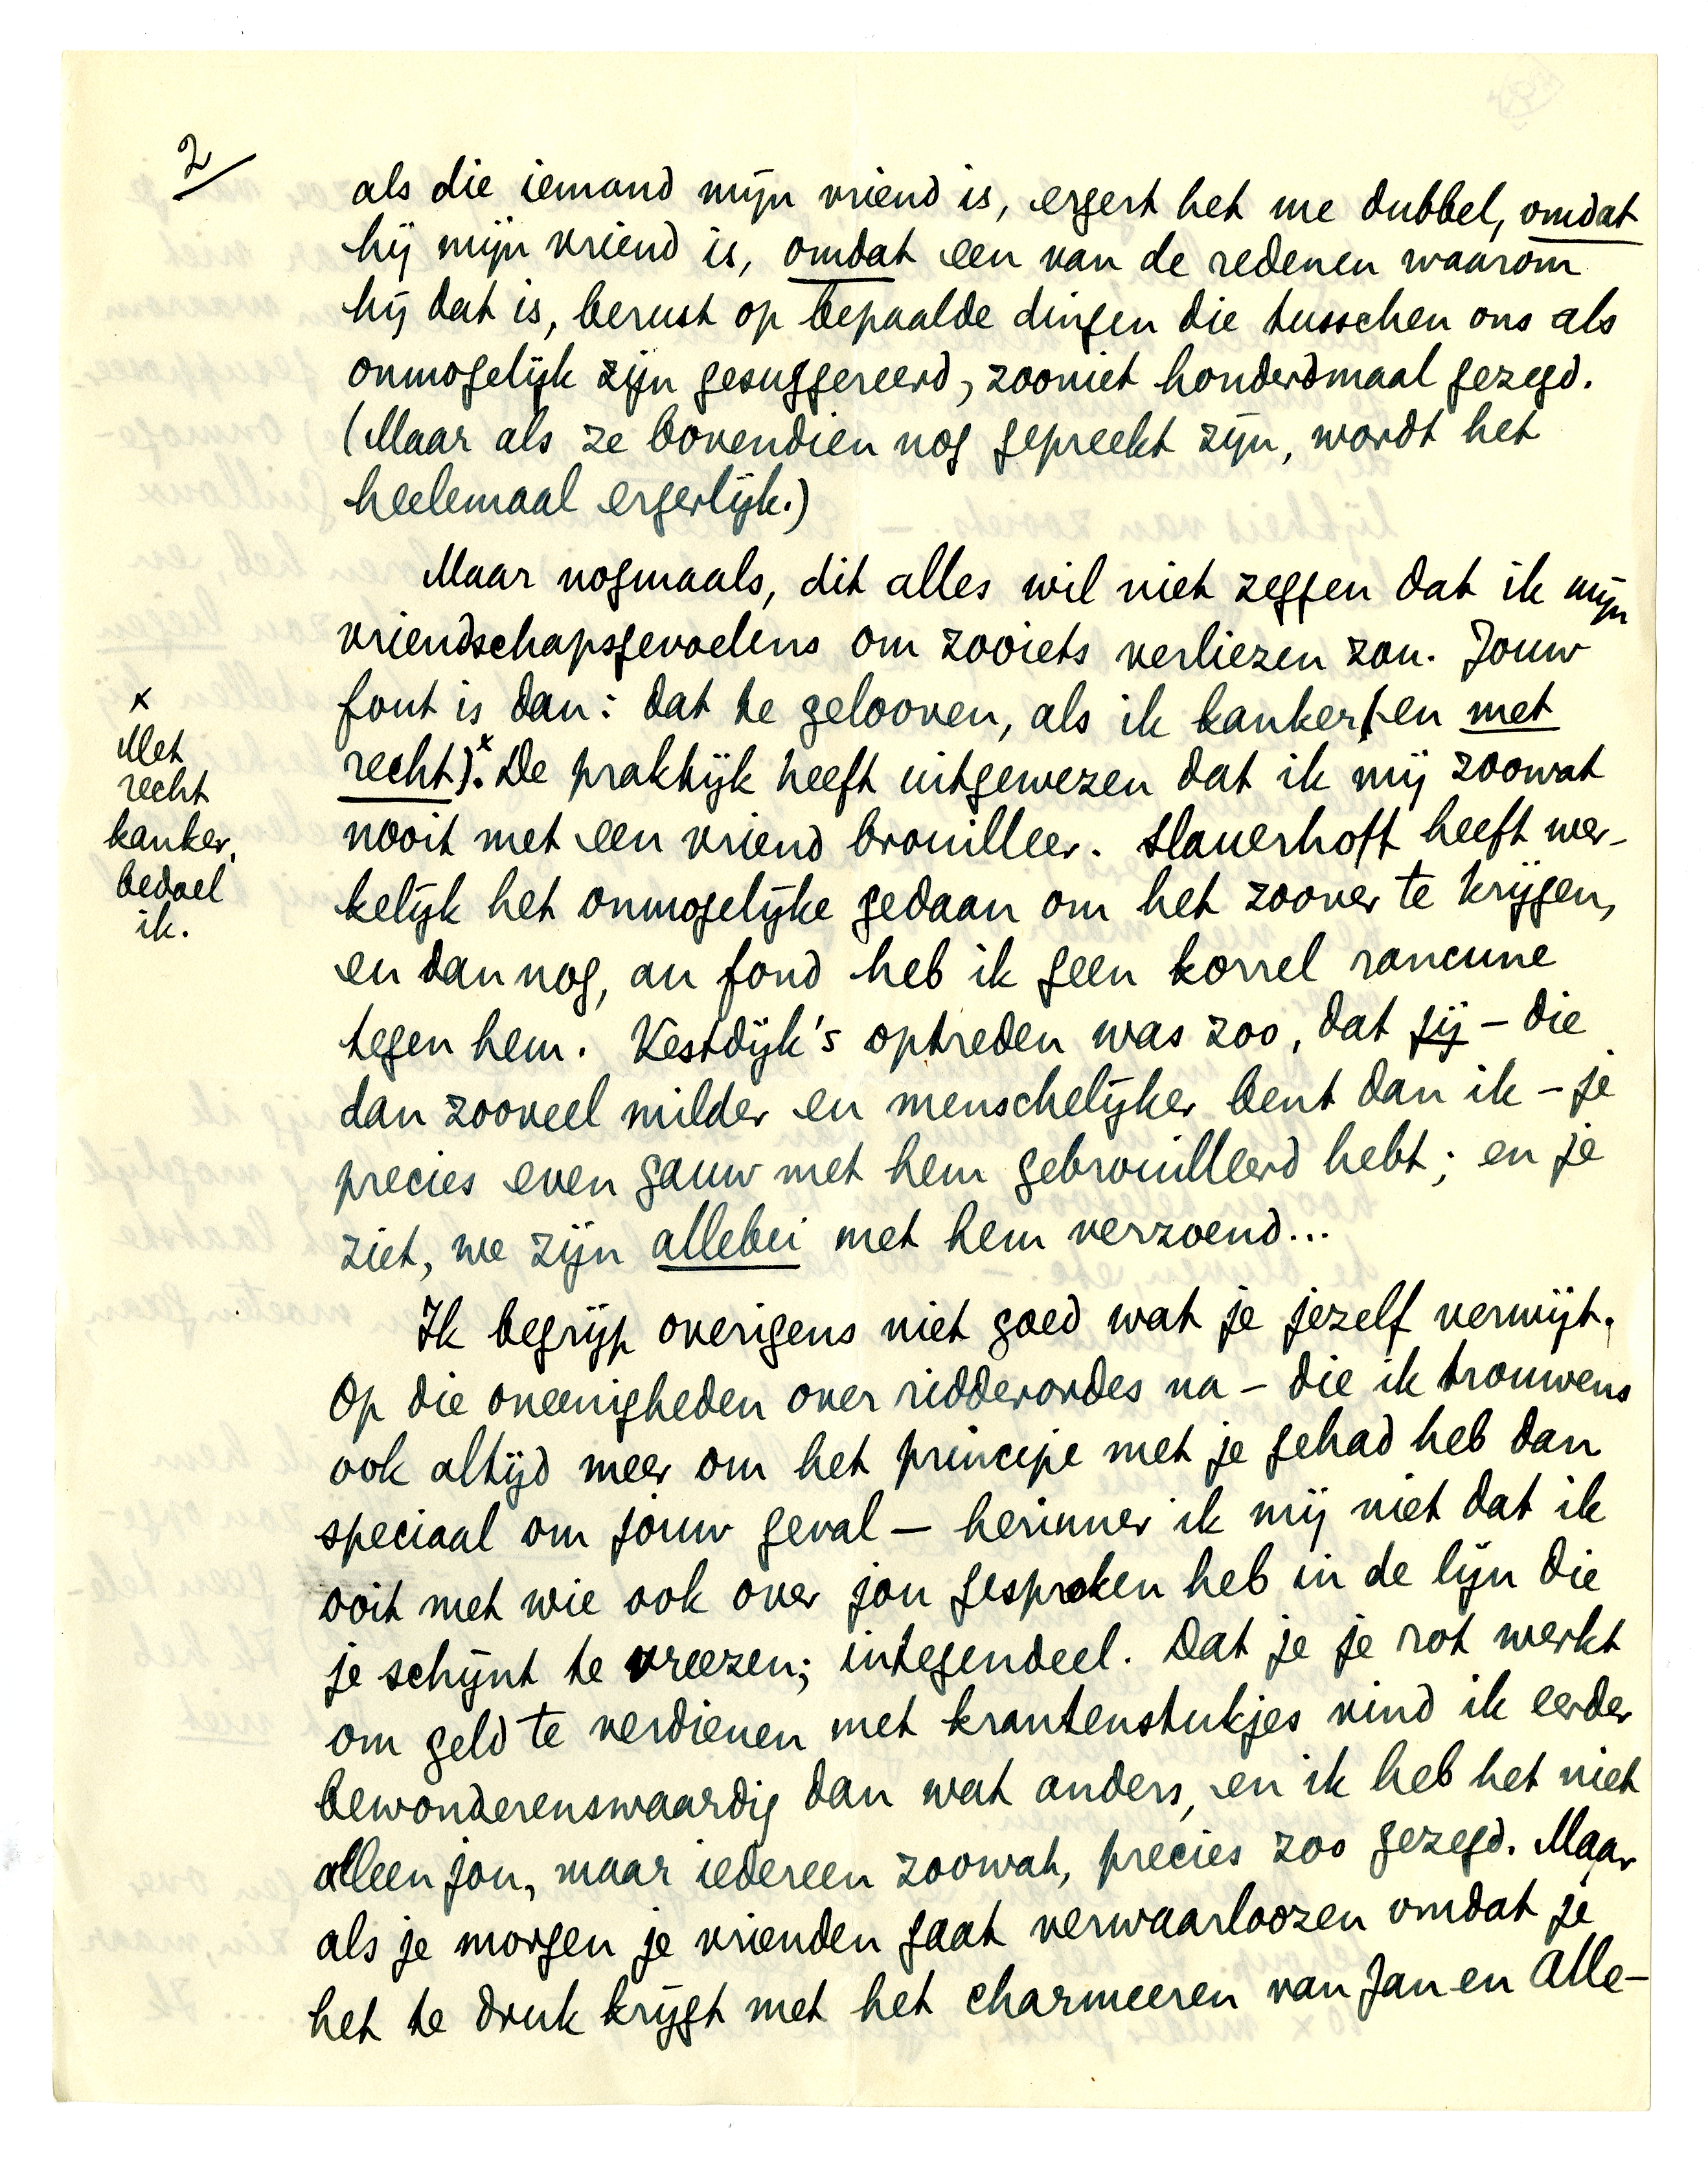 2/
als die iemand mijn vriend is, ergert het me dubbel, omdat
hij mijn vriend is, omdat een van de redenen waarom
hij dat is, berust op bepaalde dingen die tusschen ons als
onmogelijk zijn gesuggereerd, zooniet honderdmaal gezegd.
(Maar als ze bovendien nog gepreekt zijn, wordt het
heelemaal ergerlijk.)
Maar nogmaals, dit alles wil niet zeggen dat ik mijn
vriendschapsgevoelens om zooiets verliezen zou. Jouw
fout is dan: dat te gelooven, als ik kanker (en met
recht).x De praktijk heeft uitgewezen dat ik mij zoowat
nooit met een vriend brouilleer. Slauerhoff heeft wer-
kelijk het onmogelijke gedaan om het zoover te krijgen,
en dan nog, au fond heb ik geen korrel rancune
tegen hem. Vestdijk's optreden was zoo, dat jij – die
dan zooveel milder en menschelijker bent dan ik – je
precies even gauw met hem gebrouilleerd hebt; en je
ziet, we zijn allebei met hem verzoend...
Ik begrijp overigens niet goed wat je jezelf verwijt.
Op die oneenigheden over ridderordes na – die ik trouwens
ook altijd meer om het principe met je gehad heb dan
speciaal om jouw geval – herinner ik mij niet dat ik
ooit met wie ook over jou gesproken heb in de lijn die
je schijnt te vreezen; integendeel. Dat je je rot werkt
om geld te verdienen met krantenstukjes vind ik eerder
bewonderenswaardig dan wat anders, en ik heb het niet
alleen jou, maar iedereen zoowat, precies zoo gezegd. Maar
als je morgen je vrienden gaat verwaarloozen omdat je
het te druk krijgt met het charmeeren van Jan en Alle-
x
Met
recht
kanker,
bedoel
ik.